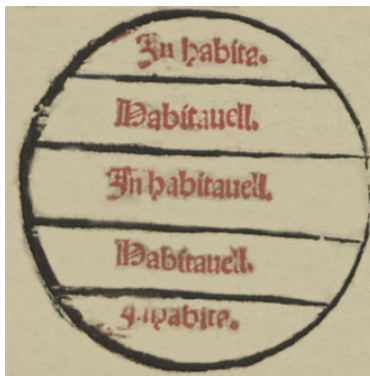 In habite.
Habitauell.
In habitauell.
Habitauell.
In habite.